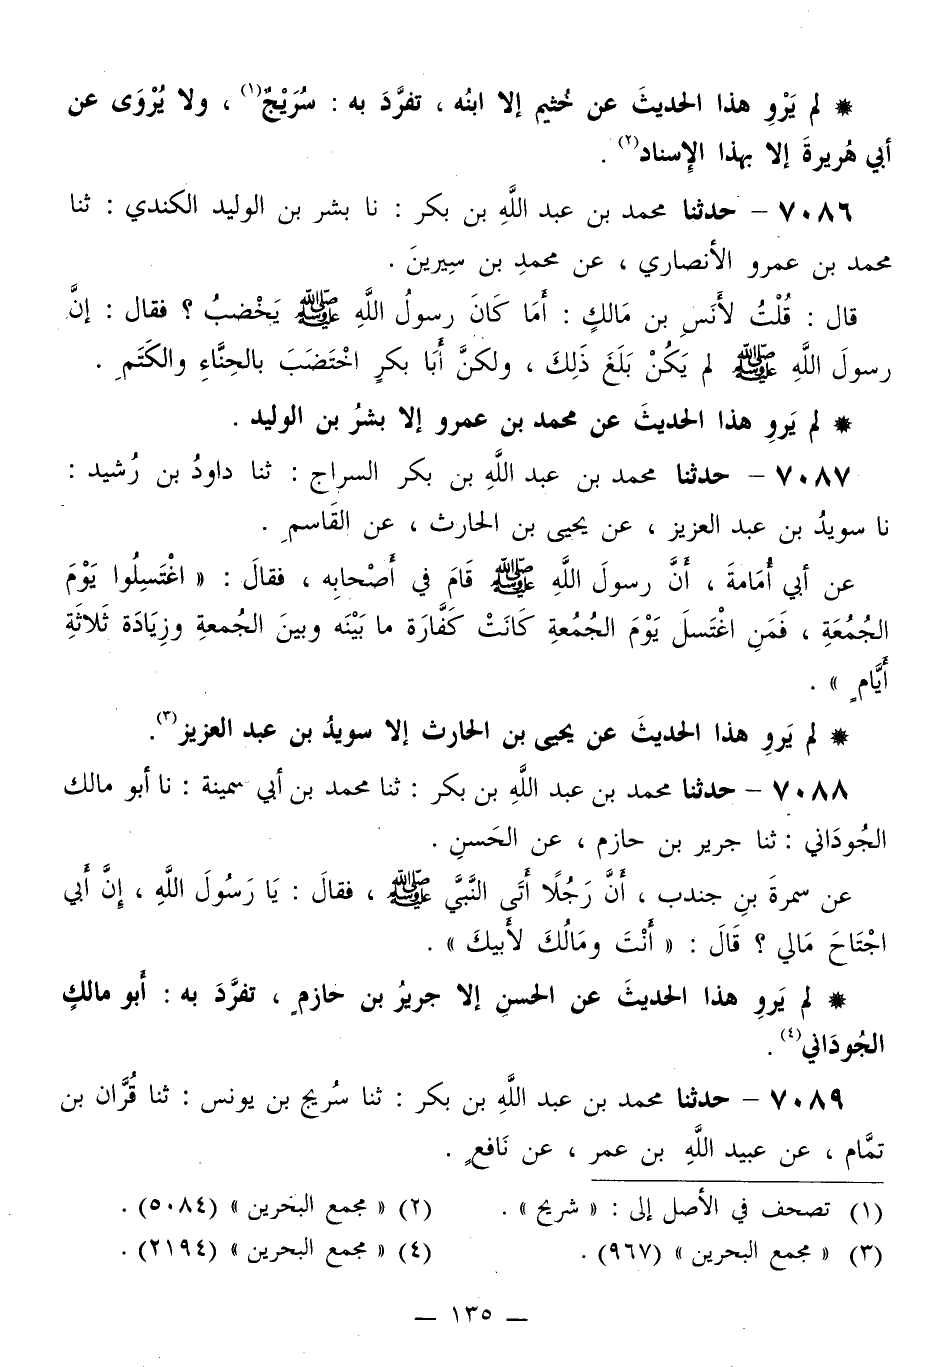 * لم يَرْوِ هذا الحديثَ عن خُثيم إلا ابنُه ، تفرَّدَ به : سُرَيْجٌ(١) ، ولا يُرْوَى عن
أبي هُريرةَ إلا بهذا الإِسناد(٢) .
٧٠٨٦ – حدثنا محمد بن عبد اللَّهِ بن بكر : نا بشر بن الوليد الكندي : ثنا
محمد بن عمرو الأنصاري ، عن محمدِ بن سِيرينَ .
قال : قُلْتُ لأَنَسِ بن مَالكٍ : أَمَا كَانَ رسولُ اللَّهِ ﷺ يَخْضبُ ؟ فقال : إنَّ
رسولَ اللَّهِ ﷺ لم يَكُنْ بَلَغَ ذَلِكَ ، ولكنَّ أَبَا بكرٍ اخْتَضَبَ بالحِنَّاءِ والكَتَمِ .
* لم يَروِ هذا الحديثَ عن محمد بن عمرو إلا بشرُ بن الوليد .
٧٠٨٧ – حدثنا محمد بن عبد اللَّهِ بن بكر السراج : ثنا داودُ بن رُشيد :
نا سويدُ بن عبد العزيز ، عن يحيى بن الحارث ، عن القَاسمِ .
عن أبي أُمَامةَ ، أَنَّ رسولَ اللَّهِ ﷺ قَامَ في أَصْحابِه ، فقالَ : « اغْتَسِلُوا يَوْمَ
الجُمُعَةِ ، فَمَنِ اغْتَسلَ يَوْمَ الجُمُعةِ كَانَتْ كَفَّارَة ما بَيْنَه وبينَ الجُمعةِ وزِيَادَة ثَلاثَةِ
أَيَّامٍ » .
* لم يَروِ هذا الحديثَ عن يحيى بن الحارث إلا سويدُ بن عبد العزيز(٣).
٧٠٨٨ – حدثنا محمد بن عبد اللَّهِ بن بكر : ثنا محمد بن أبي سمينة : نا أبو مالك
الجُودَاني : ثنا جرير بن حازم ، عن الحَسنِ .
عن سمرةَ بنِ جندب ، أَنَّ رَجُلًا أَتَى النَّبَّي ﷺ ، فقالَ : يَا رَسُولَ اللَّهِ ، إِنَّ أَبي
اجْتَاحَ مَالي ؟ قَالَ : « أَنْتَ ومَالُكَ لأَبيكَ » .
* لم يَروِ هذا الحديثَ عن الحسنِ إلا جريرُ بن حازمٍ ، تفرَّدَ به : أَبو مالكٍ
الجُودَاني(٤) .
٧٠٨٩ – حدثنا محمد بن عبد اللَّهِ بن بكر : ثنا سُريج بن يونس : ثنا قُرَّان بن
تمَّام ، عن عبيد اللَّهِ بن عمر ، عن نَافعٍ .
(١) تصحف في الأصل إلى : « شريح » .
(٢) « مجمع البحرين » (٥٠٨٤) .
(٣) « مجمع البحرين » (٩٦٧) .
(٤) « مجمع البحرين » (٢١٩٤) .
– ١٣٥ –